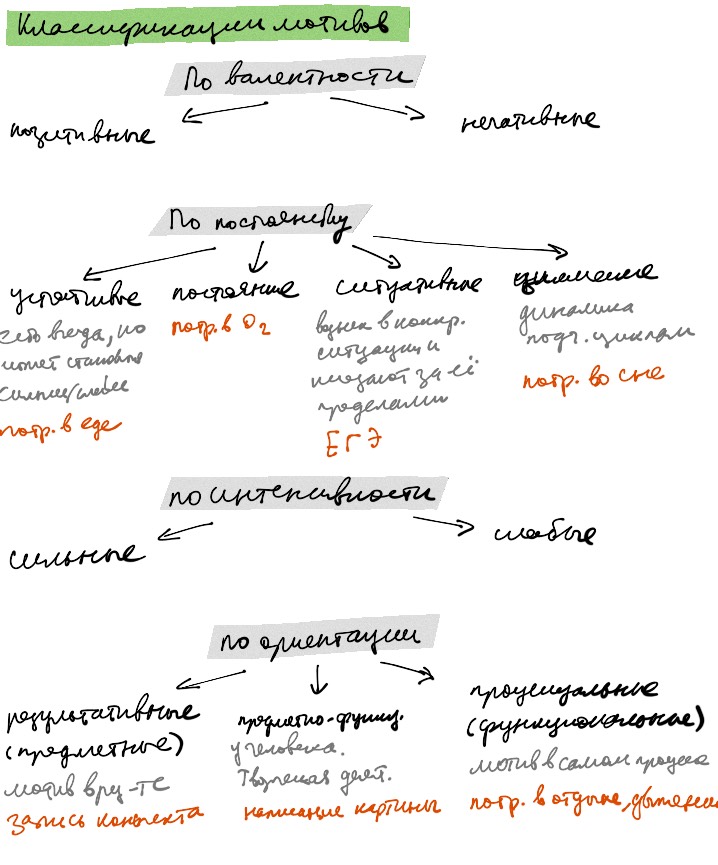 Классификации мотивов
По валентности
позитивные
негативные
По постоянству
устойчивые
постоянные
ситуативные
циклические
есть всегда, но
может становиться
сильнее/слабее
потр. в еде
потр. в O2
возник в конкр.
ситуации и
исчезают за её
пределами
ЕГЭ
динамика
подч. циклам
потр. во сне
по интенсивности
сильные
слабые
по ориентации
результативные
(предметные)
мотив в рез-те
запись конспекта
предметно-функц.
у человека.
Творческая деят.
написание картины
процессуальные
(функциональные)
мотив в самом процессе
потр. в отдыхе, движении